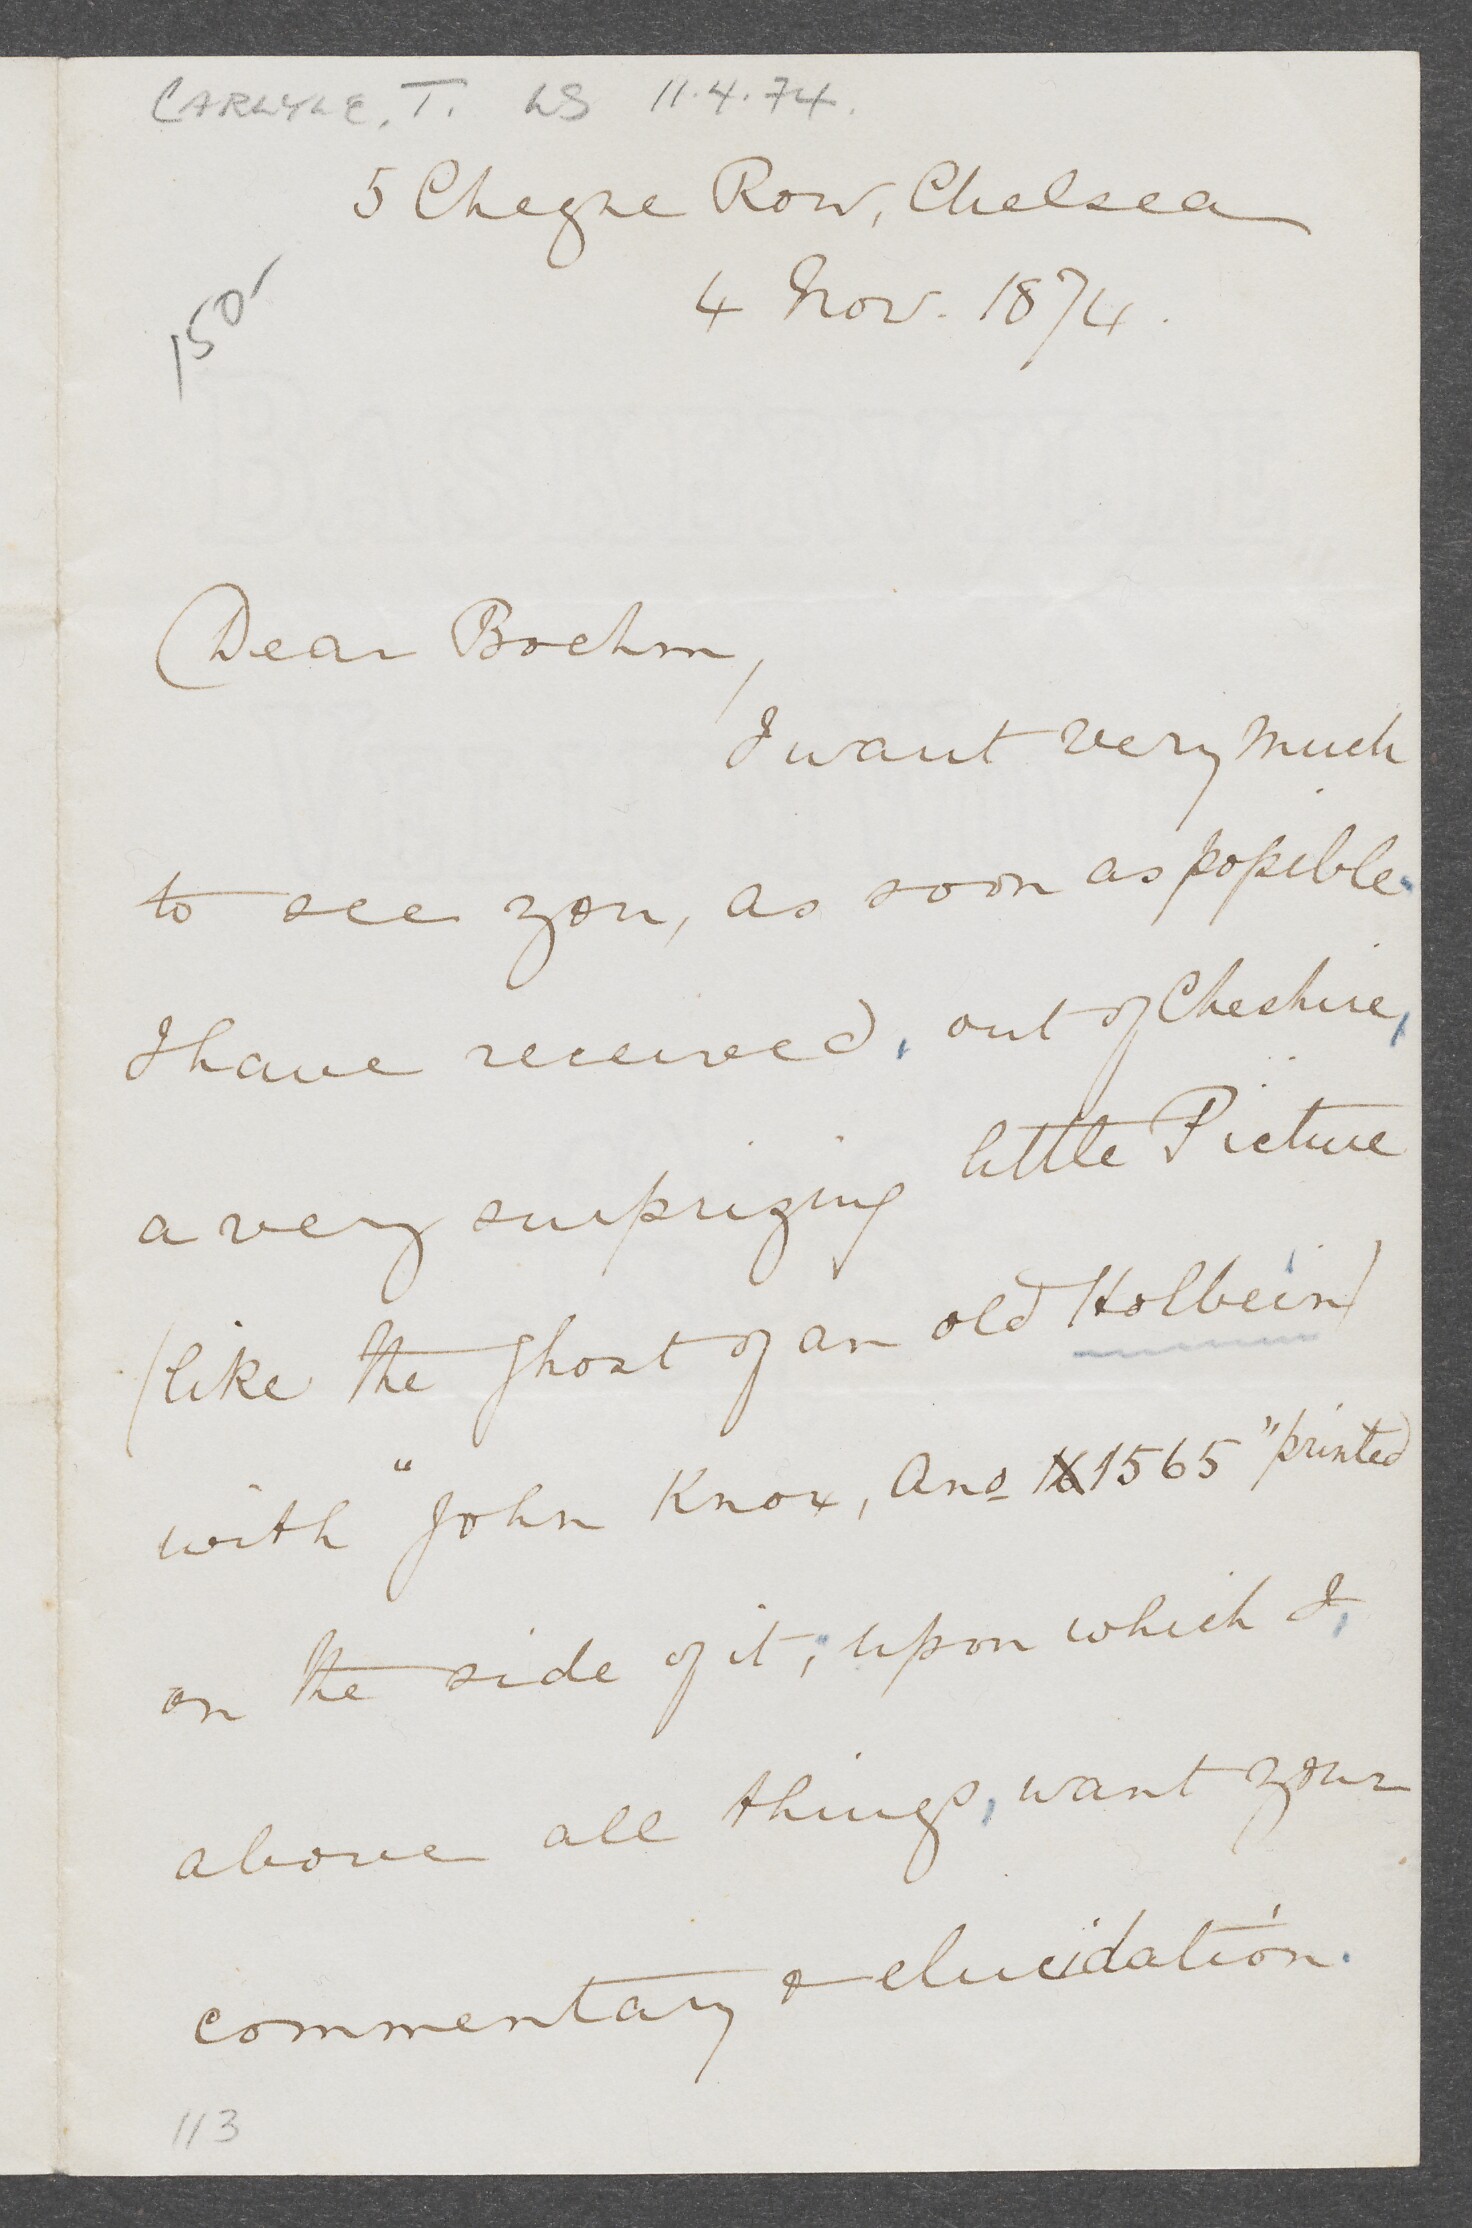 CARLYLE, T. LS 11.4.74.
5 Cheyne Row, Chelsea
4 Nov. 1874.
150-
Dear Boehm,
I want very much
to see you, as soon as possible.
I have received, out of Cheshire,
a very surprizing little Picture
(like the ghost of an old Holbein)
with "John Knox, Ano 1565" printed
on the side of it; upon which I,
above all things, want your
commentary & elucidation.
113